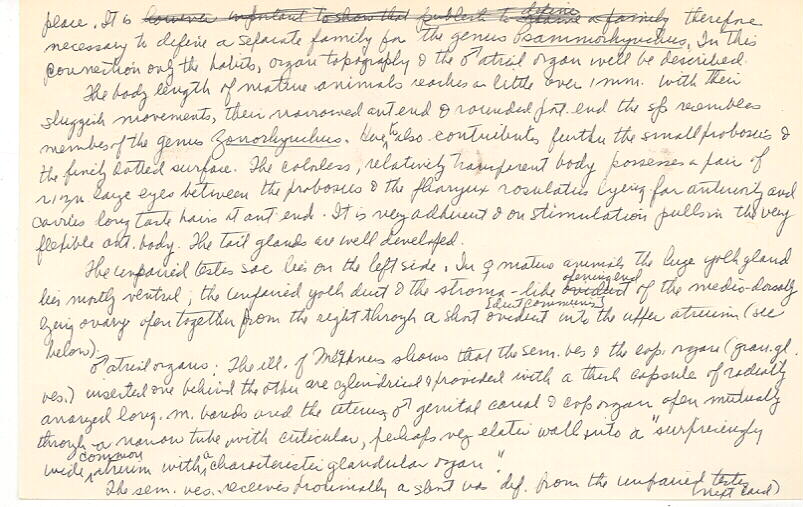 place. It is however important to show that publish to define a family therefore
necessary to define a separate family for the genus Psammorhynchus. In this
connection only the habits, organ topography & the ♂ atrial organ will be described.
The body length of mature animals reaches a little over 1 mm. With their
sluggish movements, their narrowed ant. end & rounded post. end the sp resembles
members of the genus Zonorhynchus. to also contributes further the small proboscis &
the finely dotted surface. The colorless, relatively transparent body possesses a pair of
large eyes between the proboscis & the pharynx rosulatus lying far anteriorly and
carries long taste hairs at ant. end. It is very adherent & on stimulation pulls in the very
flexible ant. body. The tail glands are well developed.
The unpaired testes sac lies on the left side. In ♀ mature animals the large yolk gland
lies mostly ventral; the unpaired yolk duct & the stroma-like oviduct opening end of the medio-dorsally
lying ovary open together from the right through a short oviduct [duct communis] into the upper atrium (see
below).
♂ atrial organs: The ill. of Meixner shows that the sem. ves & the cop. organ (gran. gl.
ves.) inserted one behind the other are cylindrical & provided with a thick capsule of radially
arranged long. m. bands and the ♂ genital canal & cop organ open mutually
through a narrow tube, with cuticular, perhaps very elastic wall into a "surprisingly
wide, common atrium with a characteristic glandular organ"
The sem. ves. receives proximally a short vas def. from the unpaired testes
(next card)